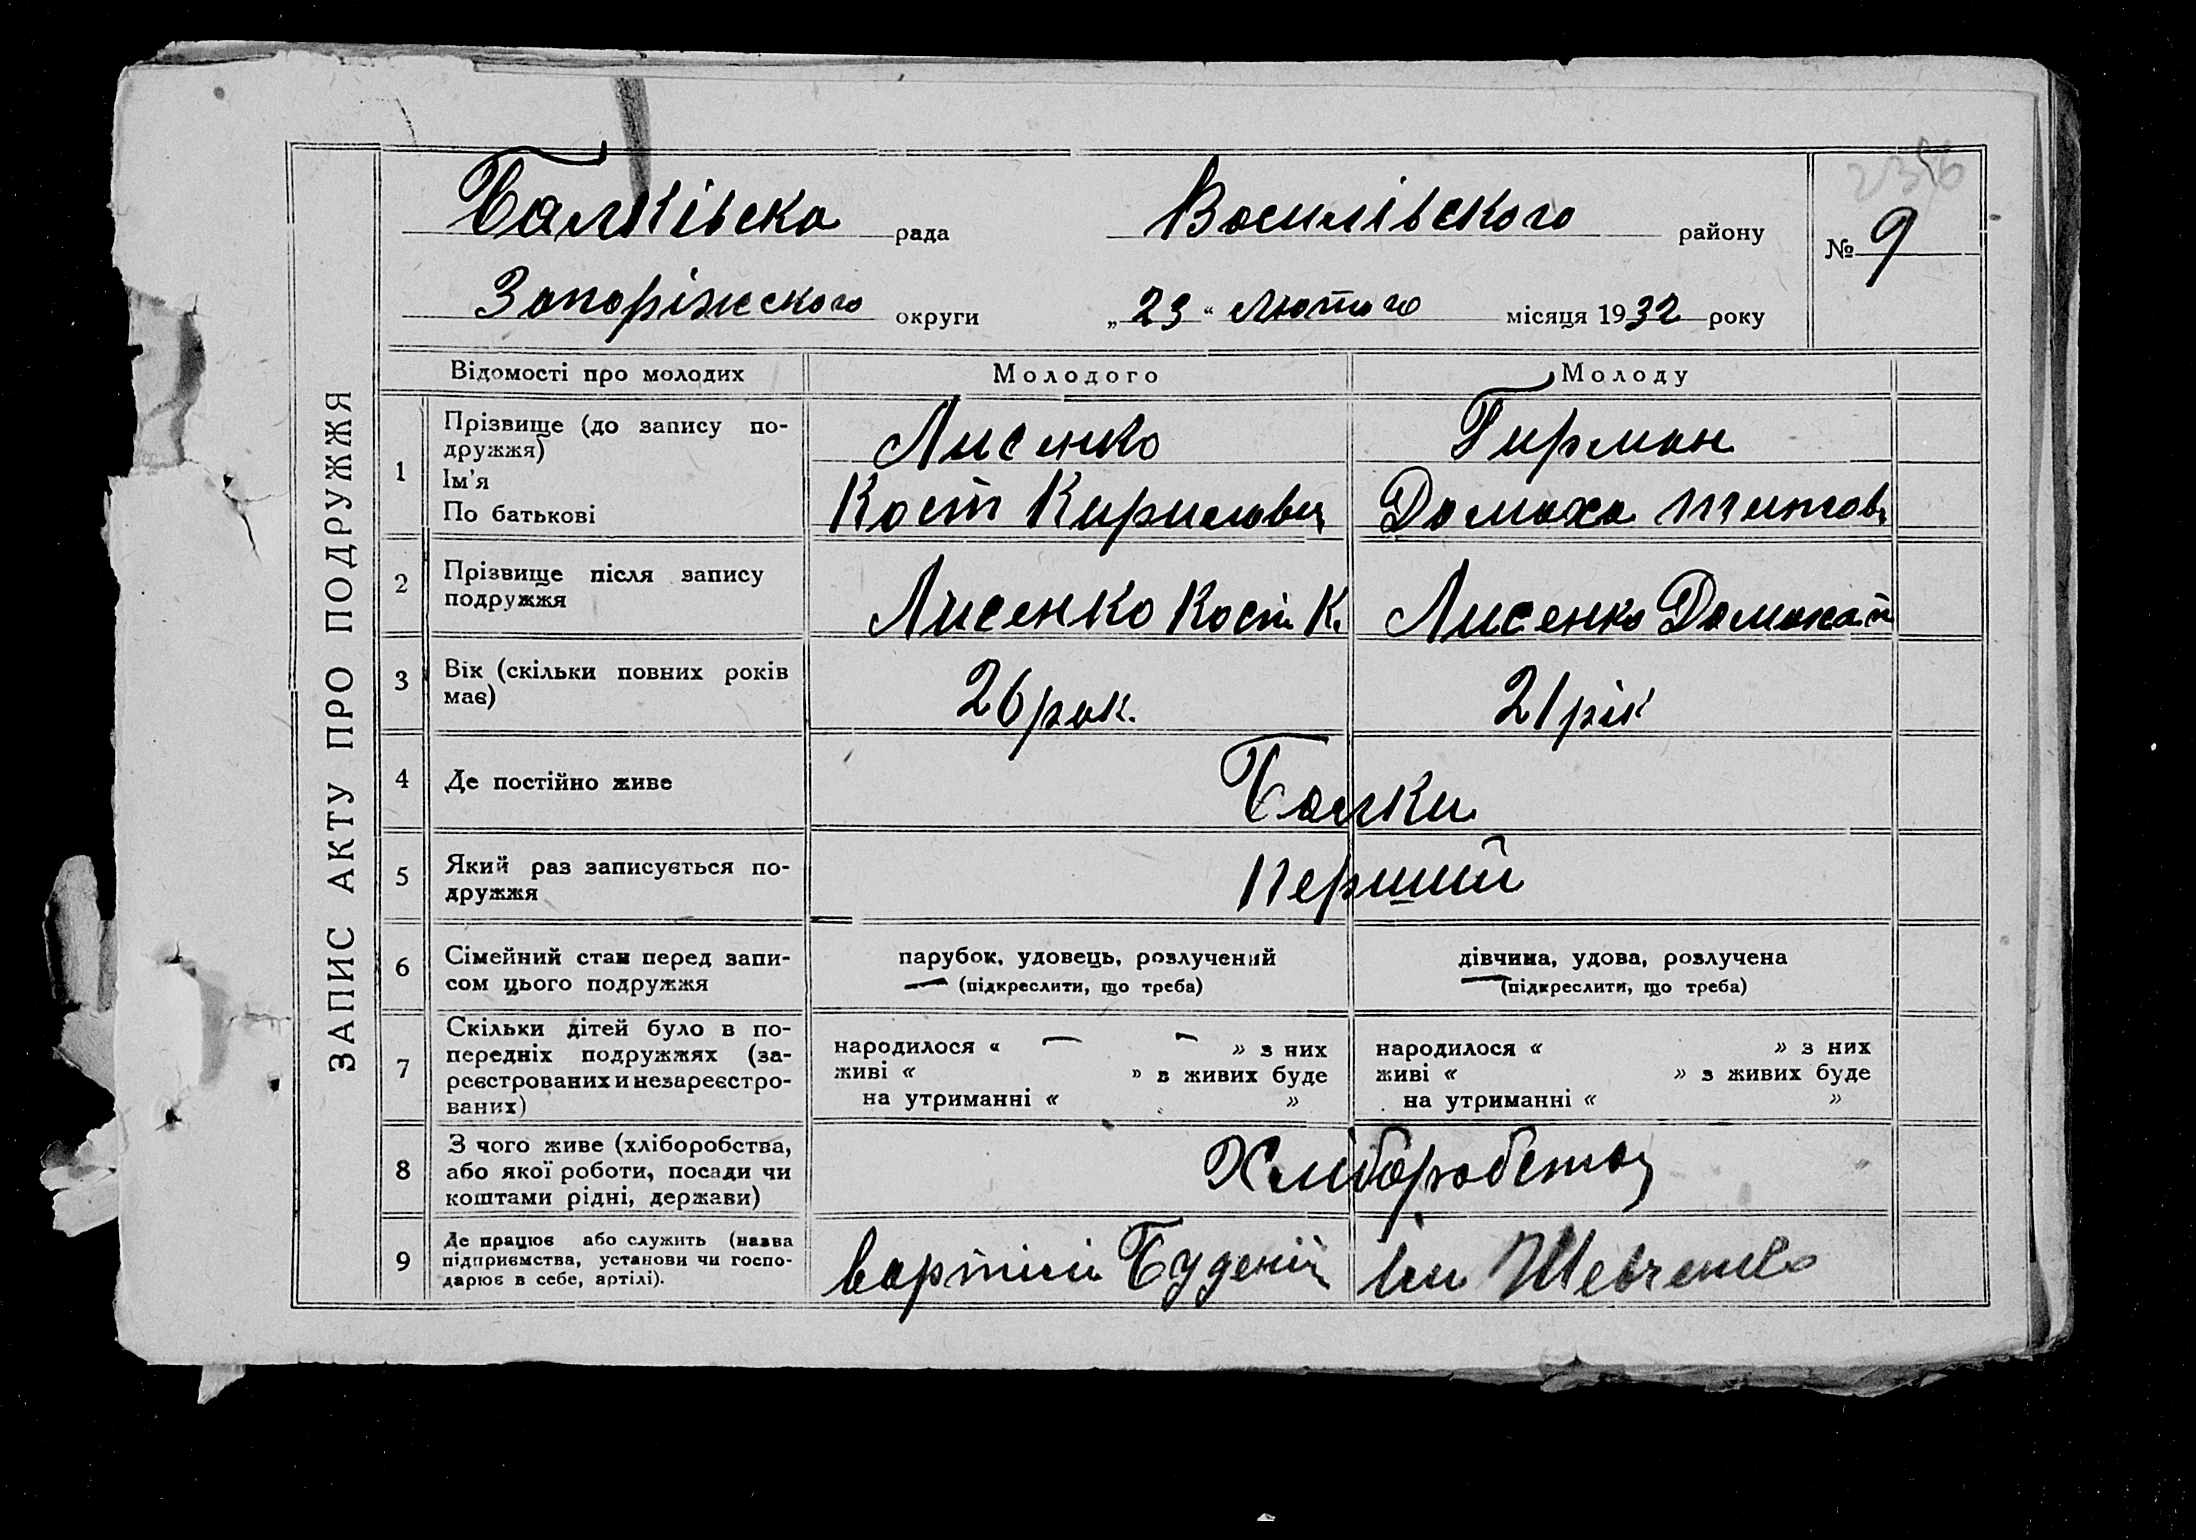 2356
Балківска рада Василівского району № 9
Запоріжского округи „23“ Лютого місяця 1932 року
ЗАПИС АКТУ ПРО ПОДРУЖЖЯ
Відомості про молодих Молодого Молоду
1 Прізвище (до запису по-
дружжя) Лисенко Гирман
Ім'я
По батькові Кост Кирилович Домаха Титов.
2 Прізвище після запису
подружжя Лисенко Кост К. Лисенко Домаха Т
3 Вік (скільки повних років
має) 26 рок. 21 рік
4 Де постійно живе Балки
5 Який раз записується по-
дружжя Перший
6 Сімейний стан перед запи-
сом цього подружжя
парубок, удовець, розлучений
(підкреслити, що треба)
дівчина, удова, розлучена
(підкреслити, що треба)
7 Скільки дітей було в по-
передніх подружжях (за-
реєстрованих и незареєстро-
ваних)
народилося « — — » з них
живі « » з живих буде
на утриманні « »
народилося « » з них
живі « » з живих буде
на утриманні « »
8 З чого живе (хліборобства,
або якої роботи, посади чи
коштами рідні, держави) Хліборобства
9 Де працює або служить (назва
підприємства, установи чи госпо-
дарює в себе, артілі).
вартілі Будені Ім Шевченка